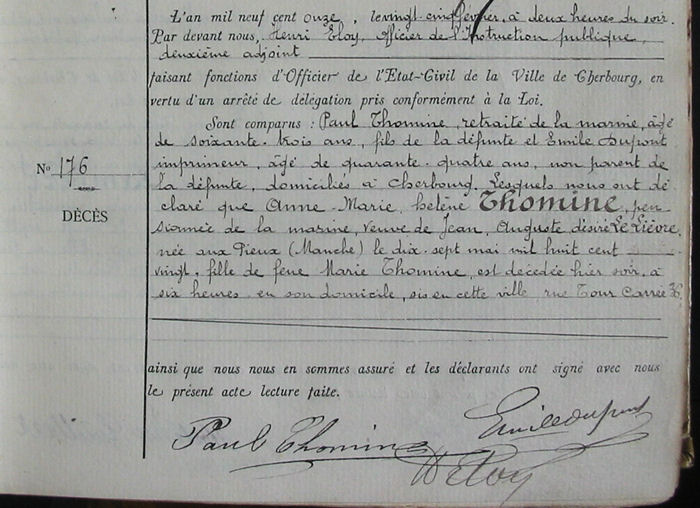 L'an mil neuf cent onze, le vingt-cinq février, à deux heures du soir.
Par devant nous, Henri Eloy, officier de l'Instruction publique,
deuxième adjoint
faisant fonctions d'Officier de l'Etat-Civil de la Ville de Cherbourg, en
vertu d'un arrêté de délégation pris conformément à la Loi.
Sont comparus : Paul Thomine, retraité de la marine, âgé
de soixante-trois ans, fils de la défunte et Emile Dupont
imprimeur, âgé de quarante-quatre ans, non parent de
la défunte, domiciliés à Cherbourg. Lesquels nous ont dé
claré que Anne-Marie, hélène Thomine, pen
sionnée de la marine, veuve de Jean, Auguste désiré Le Lièvre
née aux Pieux (Manche) le dix-sept mai mil huit cent
vingt, fille de feue Marie Thomine, est décédée hier soir, à
six heures en son domicile, sis en cette ville rue Tour Carrée 36.
N° 176
DÉCÈS
ainsi que nous nous en sommes assuré et les déclarants ont signé avec nous
le présent acte lecture faite.
Paul Thomine
Emile Dupont
H Eloy